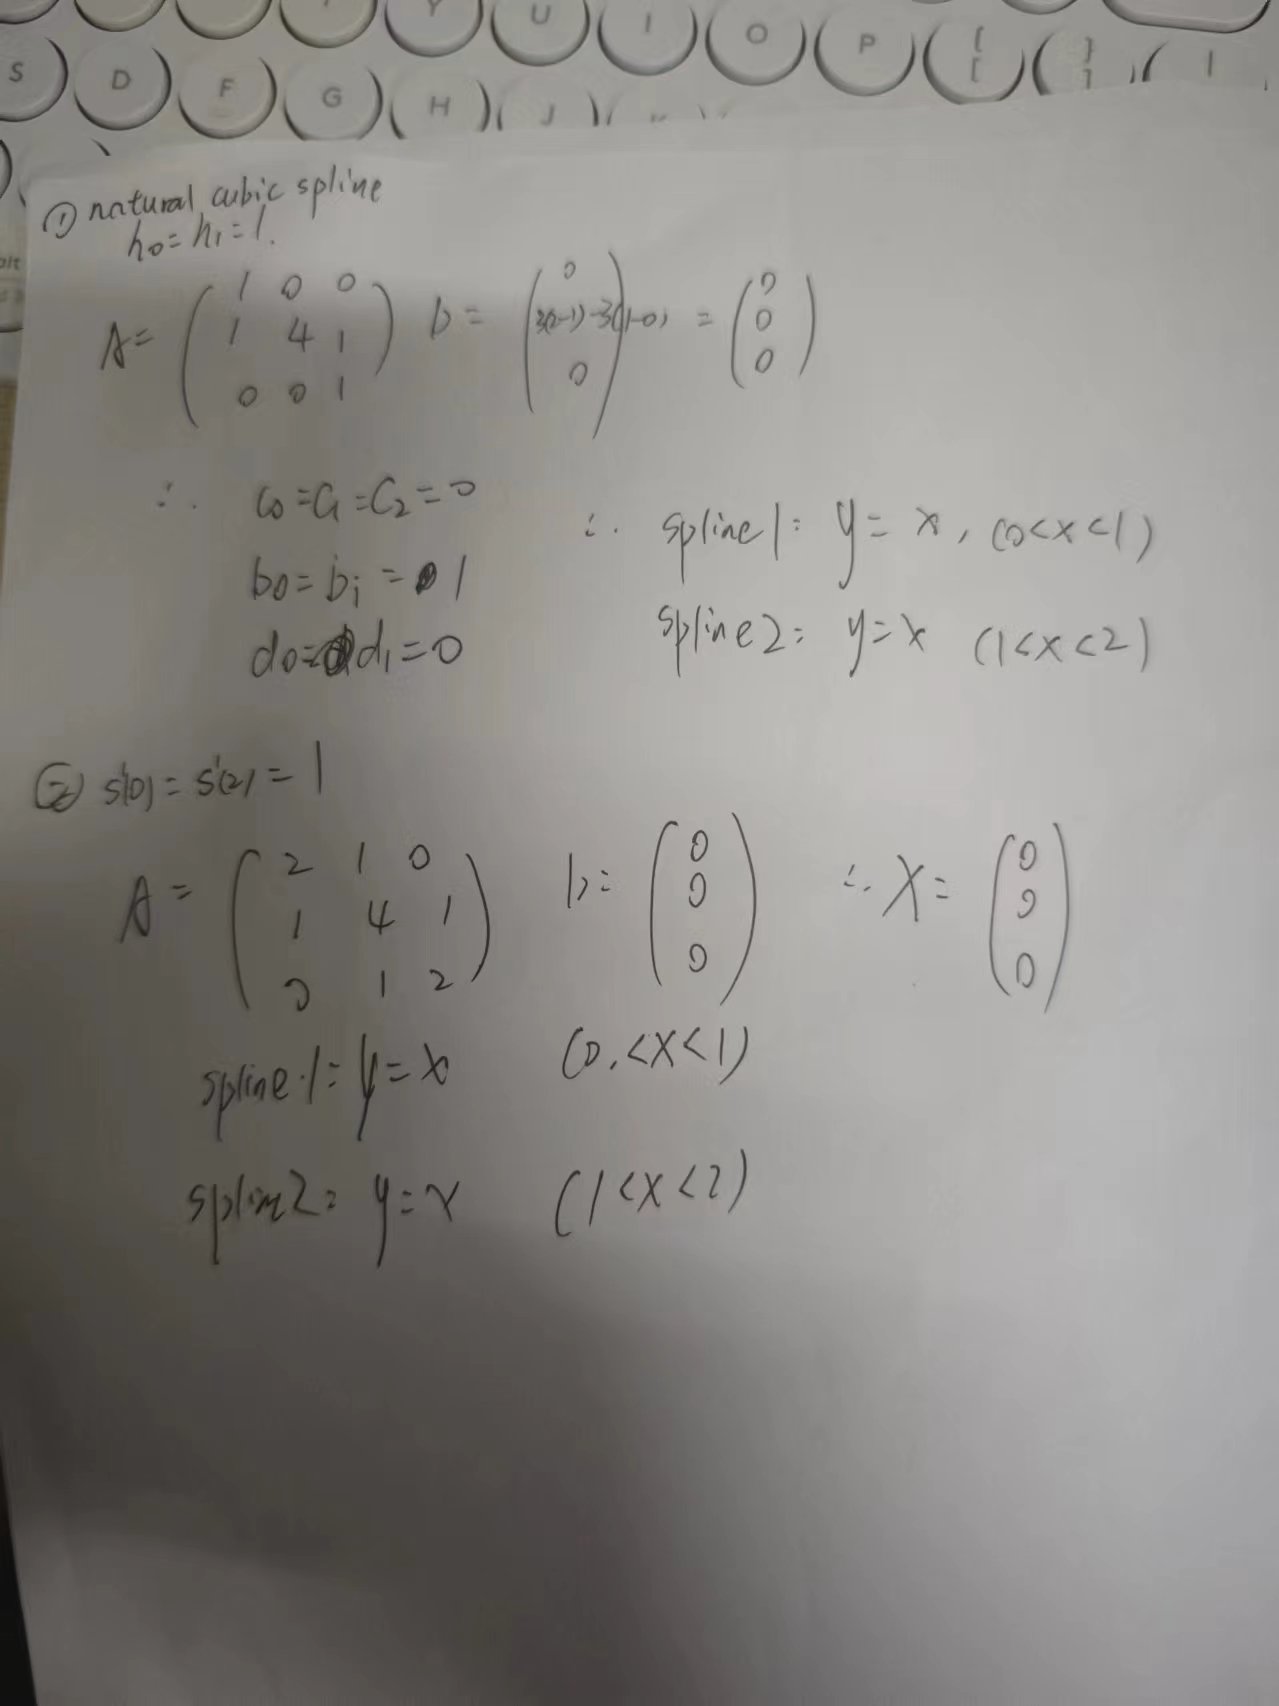 Y U I O P { [ } ] |
S D F G H J K
① natural cubic spline
h0=h1=1.
A= (1 0 0 b= (0 = (0
1 4 1 3(2-1)-3(1-0) 0
0 0 1) 0) 0)
∴ C0=C1=C2=0
b0=b1=1
d0=d1=0
∴ spline1: y=x, (0<x<1)
spline2: y=x (1<x<2)
② s'(0)=s'(2)=1
A= (2 1 0 b= (0 ∴ X= (0
1 4 1 0 0
0 1 2) 0) 0)
spline.1: y=x (0.<x<1)
spline2: y=x (1<x<2)